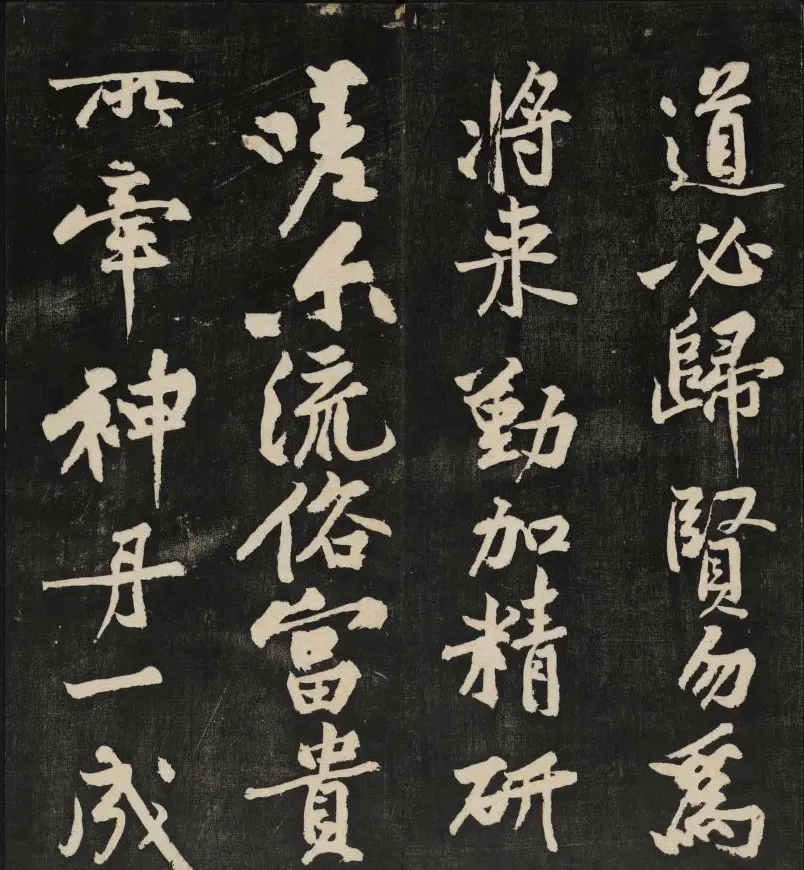 道必歸賢勿爲
将来勤加精研
嗟尔流俗富貴
所牽神丹一成